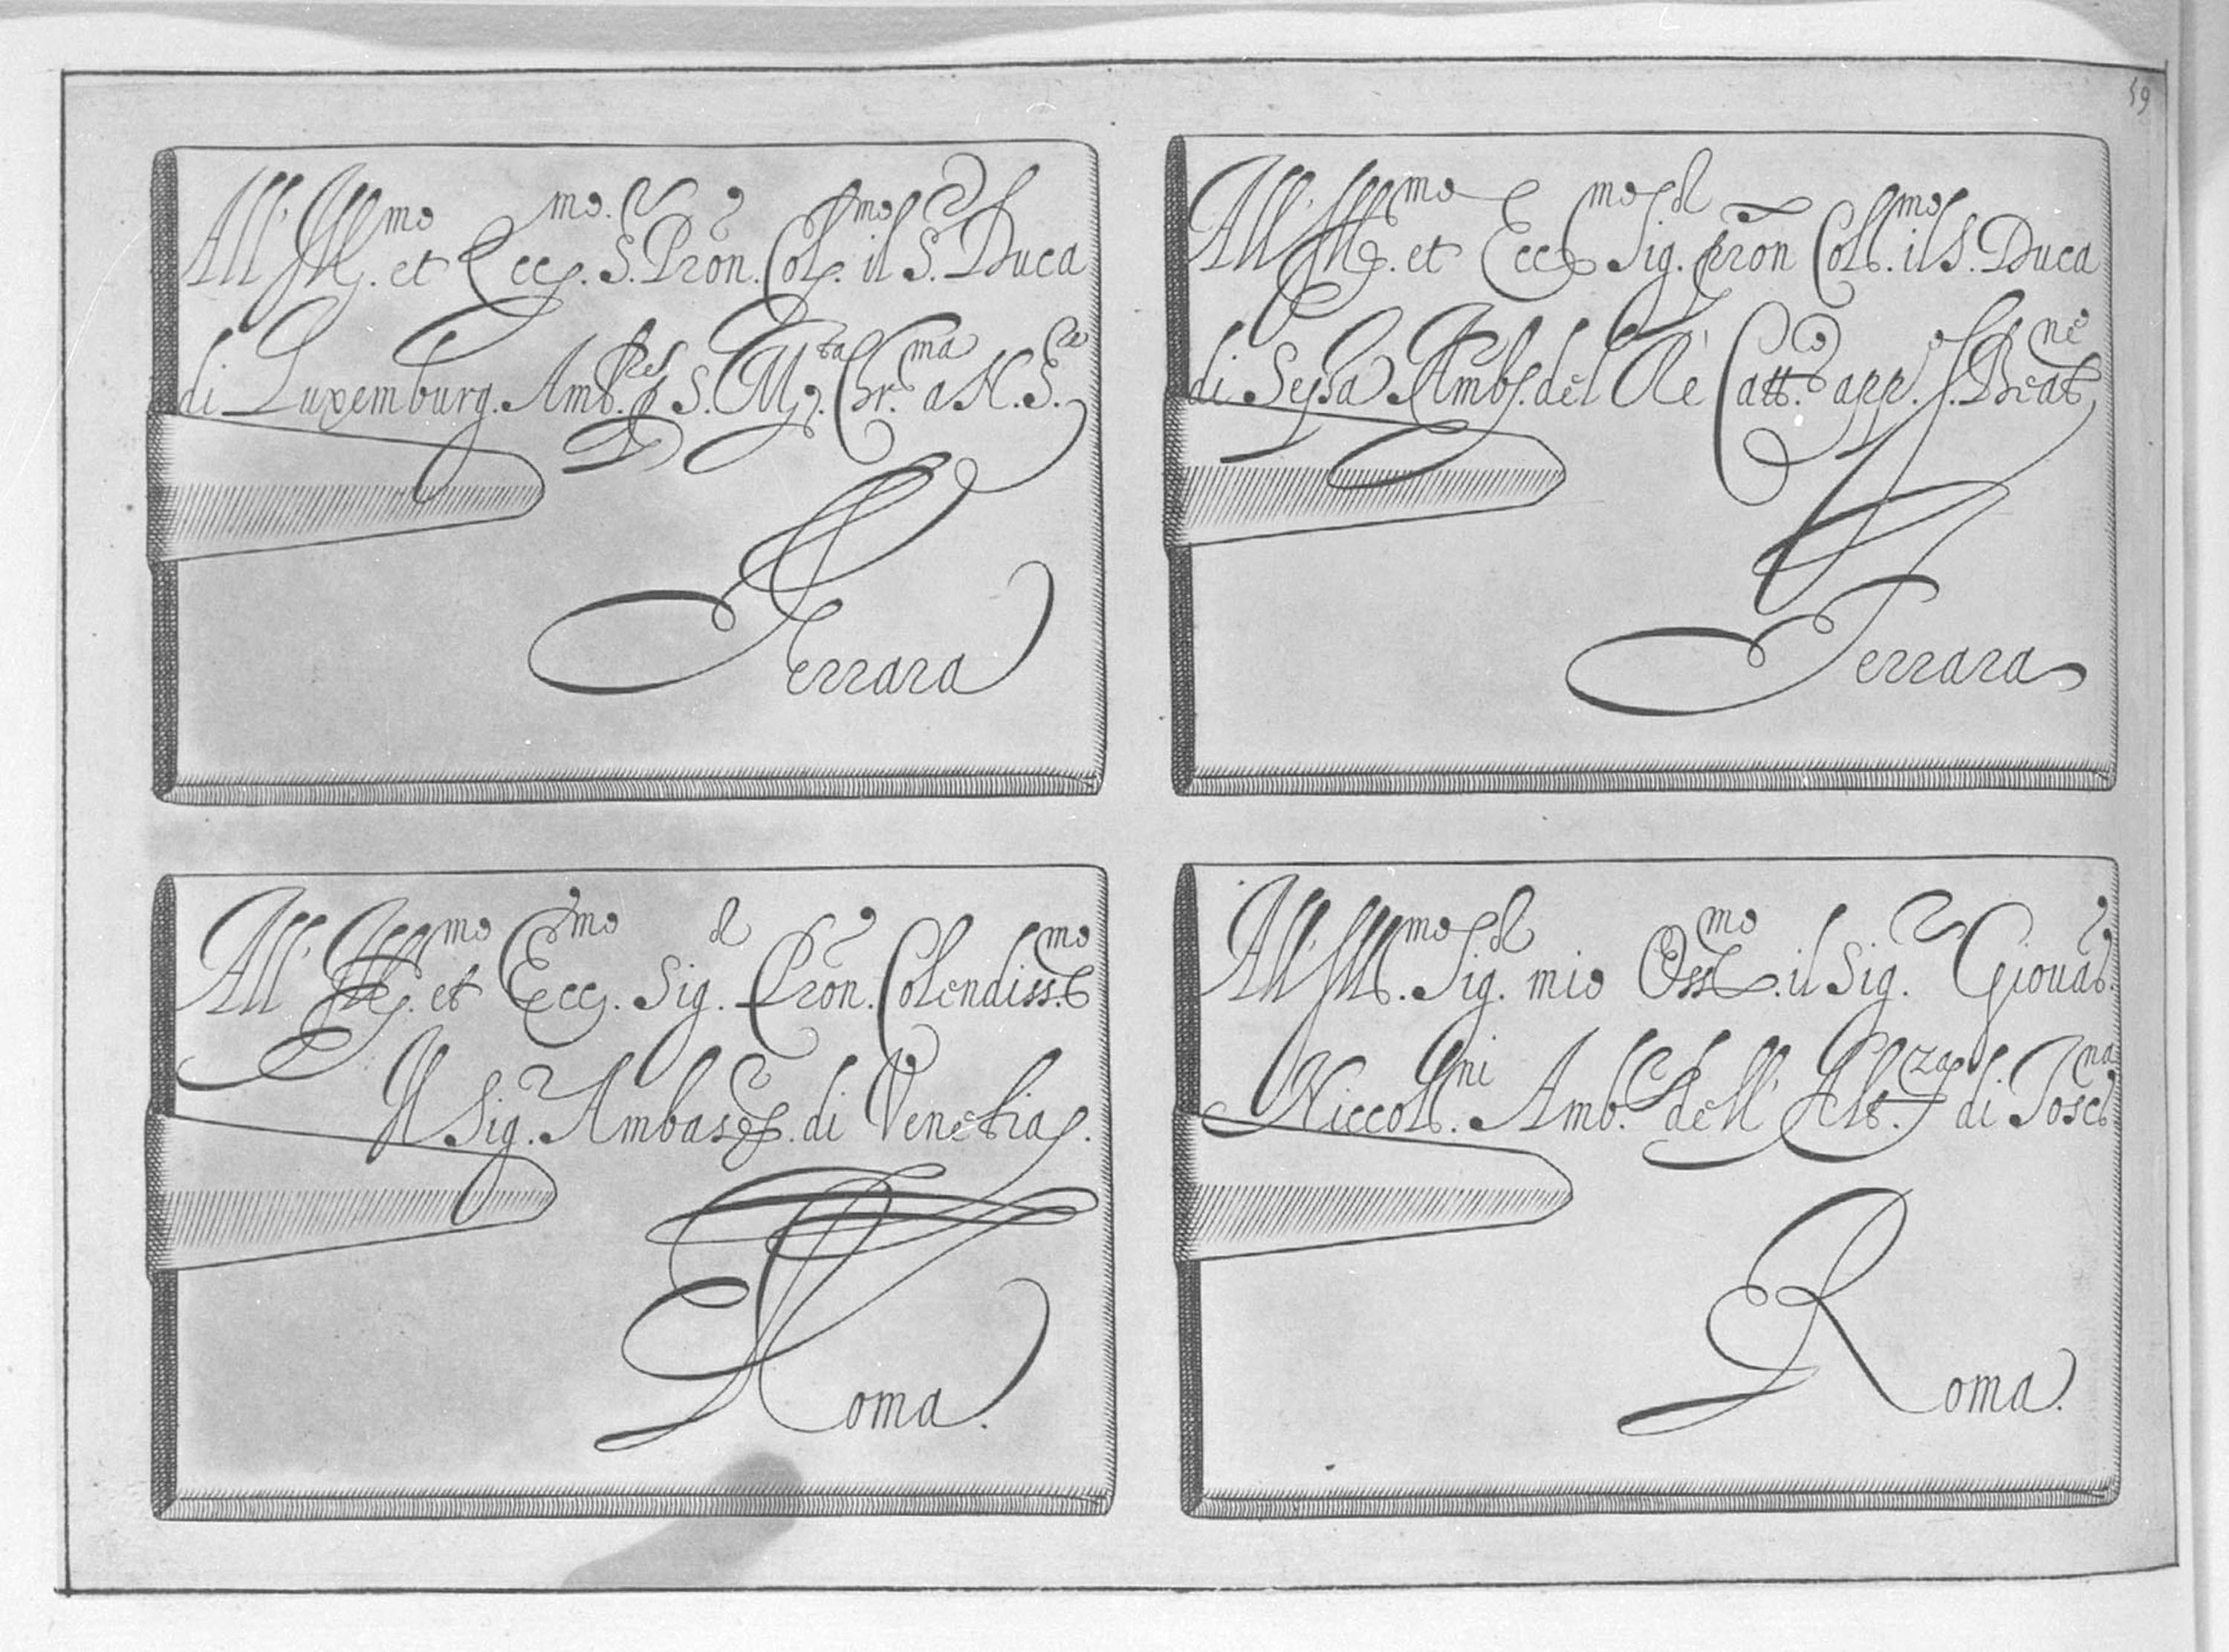 59
All' Ill.mo et Ecc.mo S. Pron. Col.mo il S. Duca
di Luxemburg. Amb.re p S. M.ta Chr.ma a N. S.re
Ferrara
All' Ill.mo et Ecc.mo Sig. pron Coll.mo il S. Duca
di Sessa Amb. del Rè Catt.o app. S. Beat.ne
Ferrara
All' Ill.mo et Ecc.mo Sig. Pron. Colendiss.mo
Il Sig. Ambasc. di Venetia.
Roma.
All' Ill.mo Sig. mio Oss.mo il Sig. Giouā
Niccoll.ni Amb. dell' Alt.za di Tosc.na
Roma.